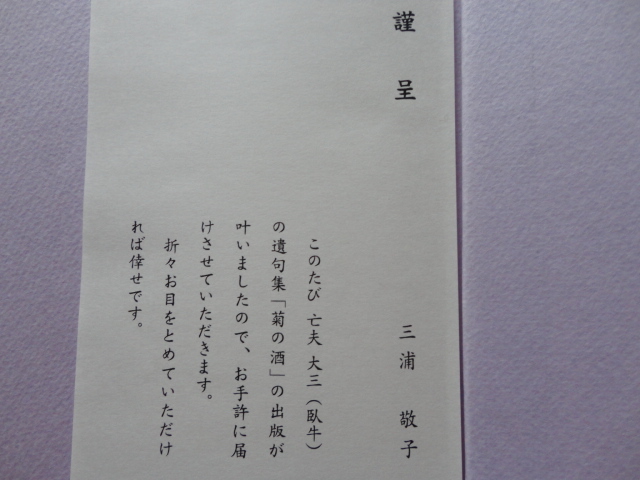 謹呈
三浦 敬子
このたび 亡夫 大三（臥牛）
の遺句集「菊の酒」の出版が
叶いましたので、お手許に届
けさせていただきます。
折々お目をとめていただけ
れば倖せです。